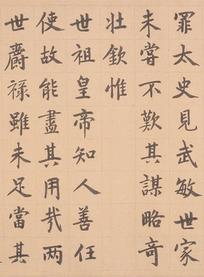 罪太史見武敏世家
未嘗不歎其謀略奇
壯欽惟
世祖皇帝知人善任
使故能盡其用哉兩
世爵祿雖未足當其